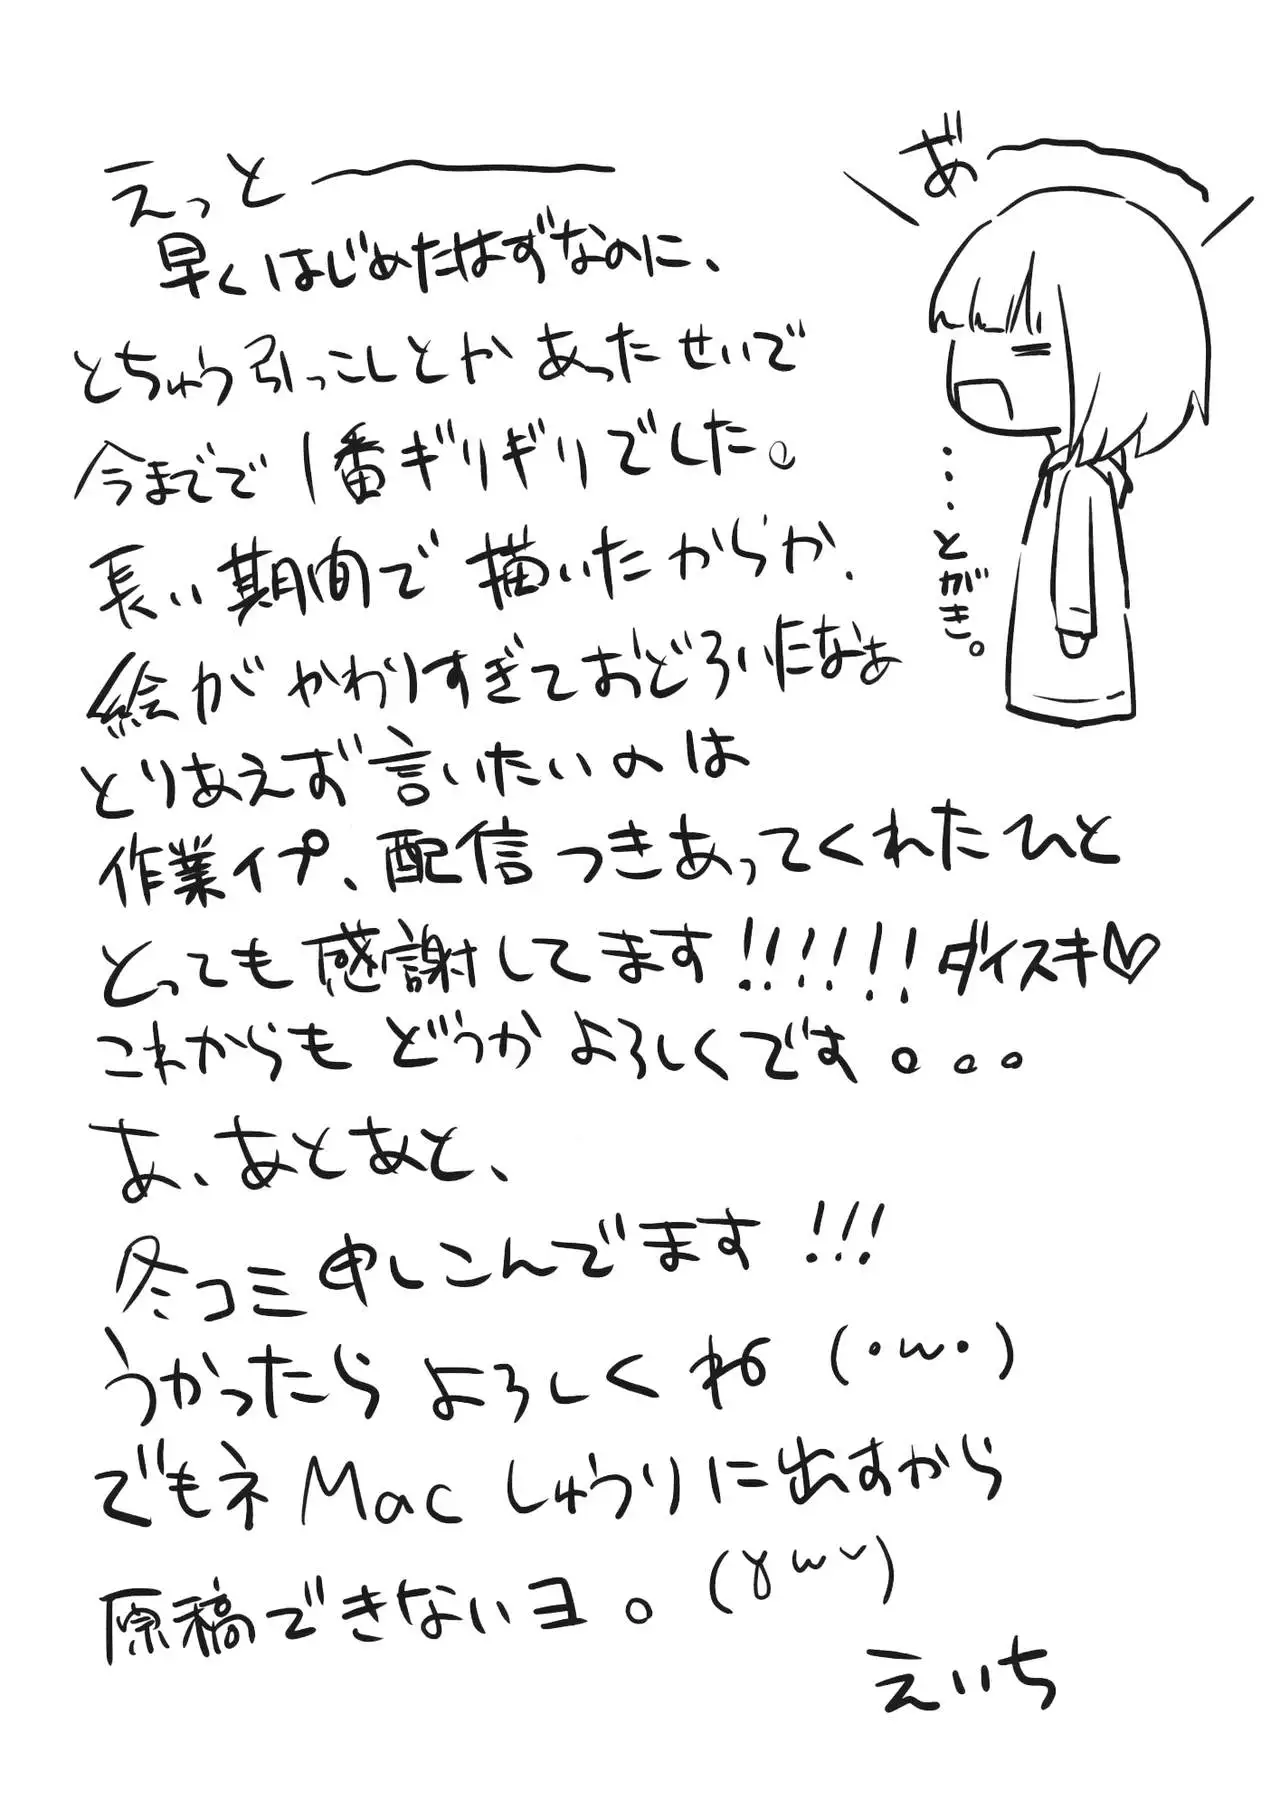 えっと――――
早くはじめたはずなのに、
とちゅう引っこしとかあったせいで
今までで1番ギリギリでした。
長い期間で描いたからか、
絵がかわりすぎておどろいたなぁ
とりあえず言いたいのは
作業イプ、配信つきあってくれたひと
とっても感謝してます!!!!!!ダイスキ♡
これからもどうかよろしくです。。。
あ、あとあと、
冬コミ申しこんでます!!!
うかったらよろしくね(・ω・)
でもネMacしゅうりに出すから
原稿できないヨ。(γω˘)
えいち
あ゛――
・・・とがき。